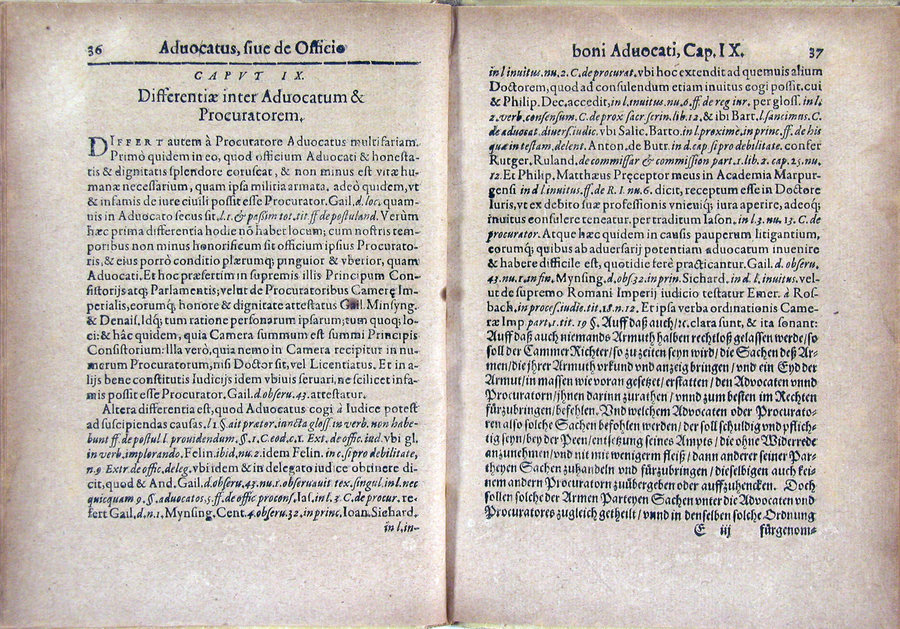 36 Aduocatus, siue de Officio
CAPVT IX.
Differentiæ inter Aduocatum &
Procuratorem.
DIFFERT autem à Procuratore Aduocatus multifariam.
Primò quidem in eo, quod officium Aduocati & honesta-
tis & dignitatis splendore coruscat, & non minus est vitæ hu-
manæ necessarium, quam ipsa militia armata. adeò quidem, vt
& infamis de iure ciuili possit esse Procurator. Gail. d. loc. quam-
uis in Aduocato secus sit, l. 1. & passim tot. tit. ff de postuland. Verùm
hæc prima differentia hodie nō habet locum; cum nostris tem-
poribus non minus honorificum sit officium ipsius Procurato-
ris, & eius porrò conditio plærumq; pinguior & vberior, quam
Aduocati. Et hoc præsertim in supremis illis Principum Con-
sistorijs atq; Parlamentis; velut de Procuratoribus Cameræ Im-
perialis, eorumq; honore & dignitate attestatus Gail. Minsyng.
& Denais. Idq; tum ratione personarum ipsarum; tum quoq; lo-
ci: & hâc quidem, quia Camera summum est summi Principis
Consistorium: Illa verò, quia nemo in Camera recipitur in nu-
merum Procuratorum, nisi Doctor sit, vel Licentiatus. Et in a-
lijs bene constitutis Iudicijs idem vbiuis seruari, ne scilicet infa-
mis possit esse Procurator. Gail. d. obseru. 43. attestatur.
Altera differentia est, quod Aduocatus cogi à Iudice potest
ad suscipiendas causas, l. 1 §. ait prætor. iuncta gloss. in verb. non habe-
bunt ff. de postul. l. prouidendum, §. 1. C. eod. c. 1. Ext. de offic. iud. vbi gl.
in verb. implorando. Felin. ibid. nu. 2. idem Felin. in c. si pro debilitate,
n. 9 Extr. de offic. deleg. vbi idem & in delegato iudice obtinere di-
cit, quod & And. Gail. d. obseru. 43. nu. 1. obseruauit tex. singul. in l. nec
quicquam 9. §. aduocatos. 5. ff. de offic procons. Ias. in l. 3. C. de procur. re-
fert Gail. d. n. 1. Mynsing. Cent. 4. obseru. 32. in princ. Ioan. Siehard.
in l. in-
boni Aduocati, Cap. IX. 37
in l inuitus. nu. 2. C. de procurat. vbi hoc extendit ad quemuis alium
Doctorem, quod ad consulendum etiam inuitus cogi possit. cui
& Philip. Dec. accedit, in l. inuitus nu. 6. ff de reg iur. per gloss. in l.
2. verb. consensum. C. de prox sacr scrin. lib. 12. & ibi Bart. l. sancimus. C.
de aduocat. diuers. iudic. vbi Salic. Barto. in l. proximè. in princ. ff. de his
quæ in testam. delent. Anton. de Butr. in d. cap. si pro debilitate. confer
Rutger. Ruland. de commissar & commission part. 1. lib. 2. cap. 25. nu.
12. Et Philip. Matthæus Præceptor meus in Academia Marpur-
gensi in d l inuitus. ff. de R. I. nu. 6. dicit, receptum esse in Doctore
Iuris, vt ex debito suæ professionis vnicuiq; iura aperire, adeoq;
inuitus consulere teneatur. per traditum Iason. in l 3. nu. 13. C. de
procurator. Atque hæc quidem in causis pauperum litigantium,
eorumq; quibus ab aduersarij potentiam aduocatum inuenire
& habere difficile est, quotidie ferè practicantur. Gail. d. obseru.
43. nu. 1. an fin. Mynsing. d. obs 32. in princ. Sichard. in d. l. inuitus. vel-
ut de supremo Romani Imperij iudicio testatur Emer. à Ros-
bach. in proces. iudic. tit. 18. n. 12. Et ipsa verba ordinationis Came-
ræ Imp part. 1. tit. 19 §. Auff daß auch / ꝛc. clara sunt, & ita sonant:
Auff daß auch niemands Armuth halben rechtloß gelassen werde / so
soll der Cammer Richter / so zu zeiten seyn wird / die Sachen deß Ar-
men / die jhrer Armuth vrkund vnd anzeig bringen / vnd ein Eyd der
Armut / in massen wie voran gesetzt / erstatten / den Advocaten vnnd
Procuratorn / jhnen darinn zurathen / vnnd zum besten im Rechten
fürzubringen / befehlen. Vnd welchem Advocaten oder Procurato-
ren also solche Sachen befohlen werden / der soll schuldig vnd pflich-
tig seyn / bey der Peen / entsetzung seines Ampts / die ohne Widerrede
anzunehmen / vnd nit mit wenigerm fleiß / dann anderer seiner Par-
theyen Sachen zuhandeln vnd fürzubringen / dieselbigen auch kei-
nem andern Procuratorn zuübergeben oder auffzuhencken. Doch
sollen solche der Armen Parteyen Sachen vnter die Advocaten vnd
Procuratores zugleich getheilt / vnnd in denselben solche Ordnung
E iij fürgenom-